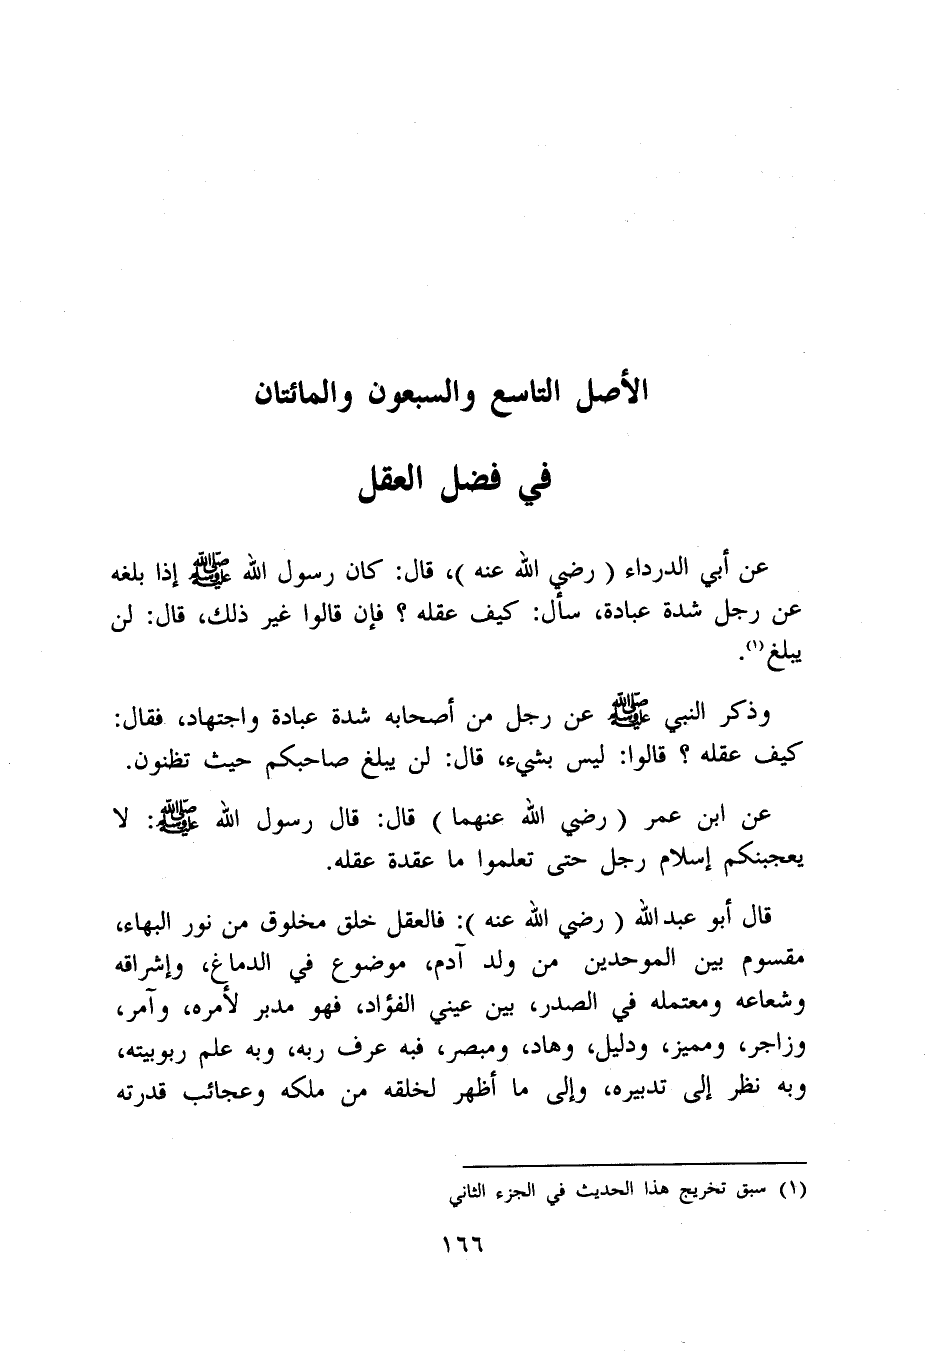 الأصل التاسع والسبعون والمائتان
في فضل العقل
عن أبي الدرداء ( رضي الله عنه )، قال: كان رسول الله ﷺ إذا بلغه
عن رجل شدة عبادة، سأل: كيف عقله ؟ فإن قالوا غير ذلك، قال: لن
يبلغ(١).
وذكر النبي ﷺ عن رجل من أصحابه شدة عبادة واجتهاد، فقال:
كيف عقله ؟ قالوا: ليس بشيء، قال: لن يبلغ صاحبكم حيث تظنون.
عن ابن عمر ( رضي الله عنهما ) قال: قال رسول الله ﷺ: لا
يعجبنكم إسلام رجل حتى تعلموا ما عقدة عقله.
قال أبو عبد الله ( رضي الله عنه ): فالعقل خلق مخلوق من نور البهاء،
مقسوم بين الموحدين من ولد آدم، موضوع في الدماغ، وإشراقه
وشعاعه ومعتمله في الصدر، بين عيني الفؤاد، فهو مدبر لأمره، وآمر،
وزاجر، ومميز، ودليل، وهاد، ومبصر، فبه عرف ربه، وبه علم ربوبيته،
وبه نظر إلى تدبيره، وإلى ما أظهر لخلقه من ملكه وعجائب قدرته
(١) سبق تخريج هذا الحديث في الجزء الثاني
١٦٦